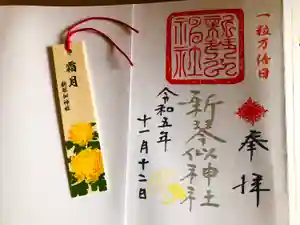 一粒万倍日
奉拝
新琴似神社
新琴似神社
令和五年
十一月十二日
霜月
新琴似神社